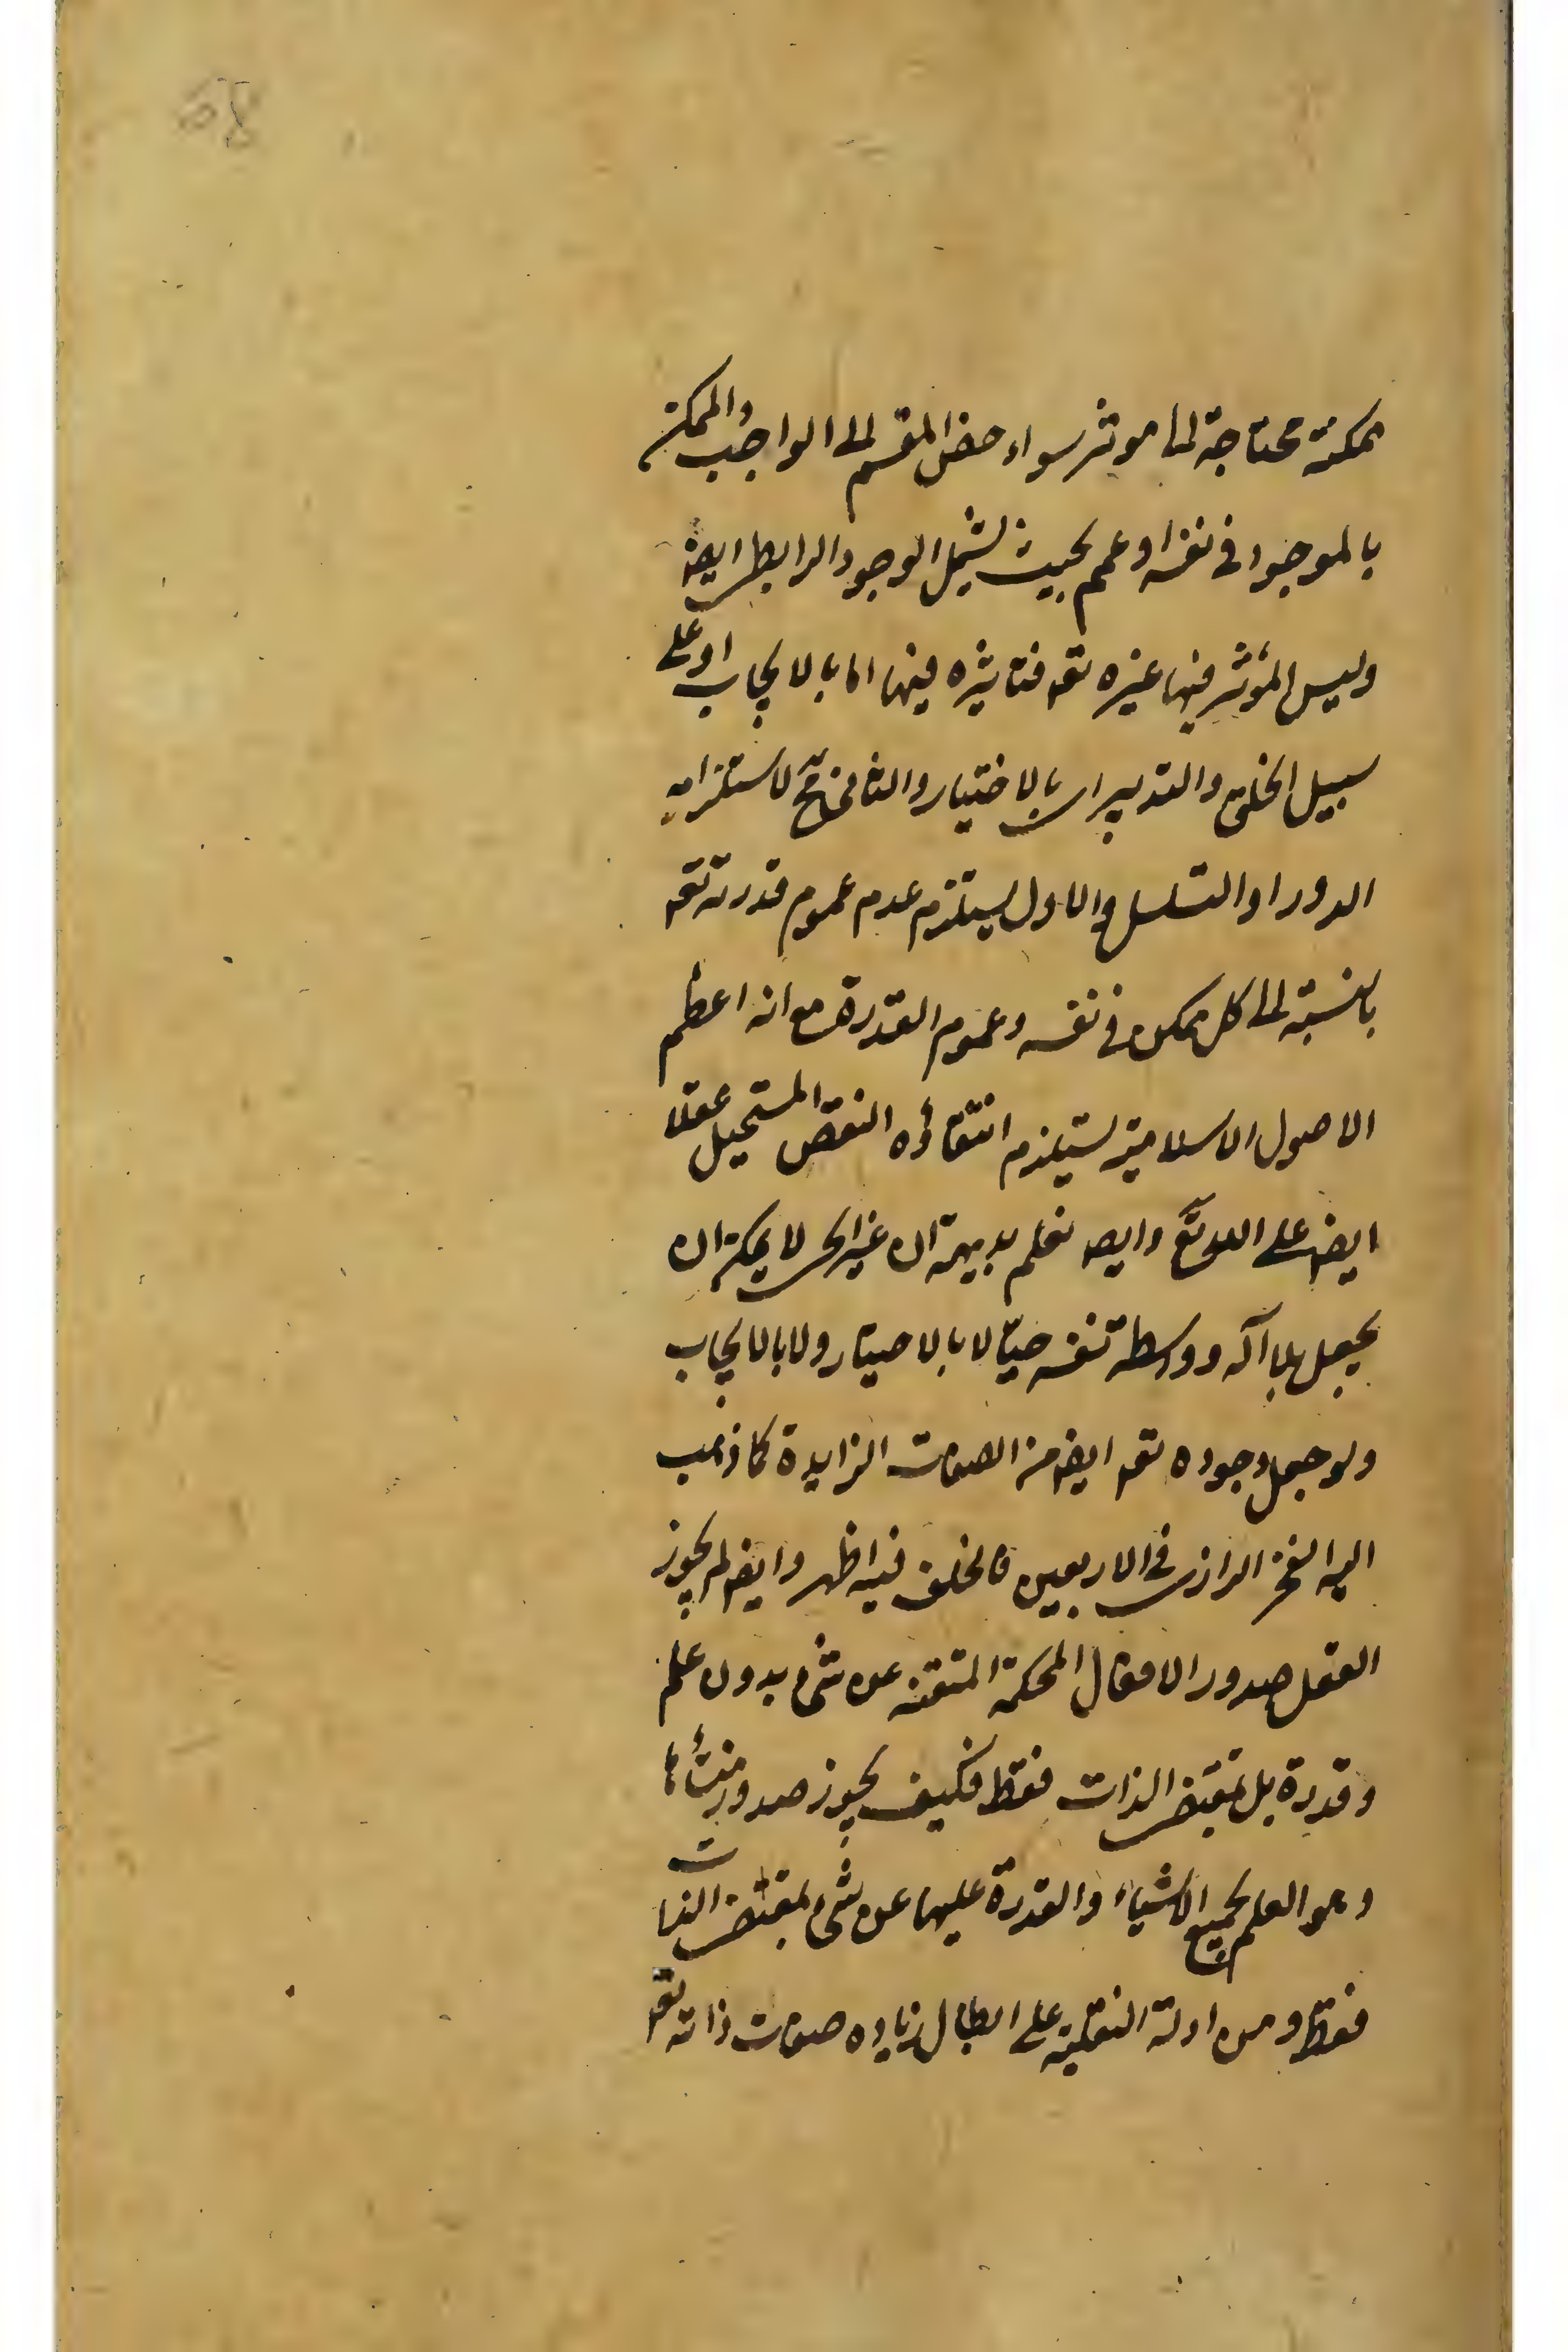 68
ممكنة محتاجة الى موثر سواء خص المقسم الى الواجب والممكن
بالموجود فى نفسه او عمم بحيث يشمل الوجود الرابطى ايضا
وليس المؤثر فيها غيره تعه فتاثيره فيها اما بالايجاب او على
سبيل الخلق والتدبير اى بالاختيار والثانى مح لاستلزامه
الدور او التسلسل والاول يستلزم عدم عموم قدرته تعه
بالنسبة الى كل ممكن فى نفسه وعموم القدرة مع انه اعظم
الاصول الاسلامية يستلزم انتفاؤه النقص المستحيل عقلا
ايضا على الله تع وايضا نعلم بديهة ان غير الحى لا يمكن ان
يجعل بلا آلة وواسطة نفسه حيّا لا بالاختيار ولا بالايجاب
ولو جعل وجوده تعه ايضا من الصفات الزايدة كما ذهب
اليه الفخر الرازى فى الاربعين فالخلف فيه اظهر وايضا لم يجوز
العقل صدور الافعال المحكمة المتقنه عن شىء بدون علم
وقدرة بل بمقتضى الذات فقط فكيف يجوز صدور منشأها
وهو العلم بجميع الاشياء والقدرة عليها عن شىء بمقتضى الذات
فقط ومن ادلة النقلية على ابطال زيادة صفات ذاته تعه